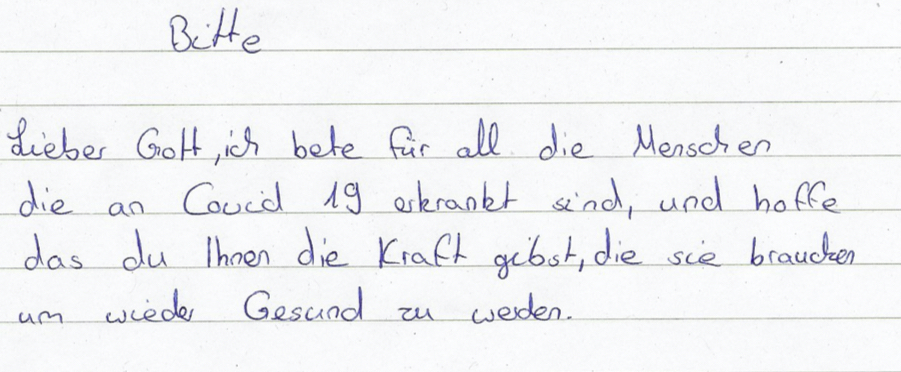 Bitte
Lieber Gott, ich bete für all die Menschen
die an Covid 19 erkrankt sind, und hoffe
das du Ihnen die Kraft gibst, die sie brauchen
um wieder Gesund zu werden.